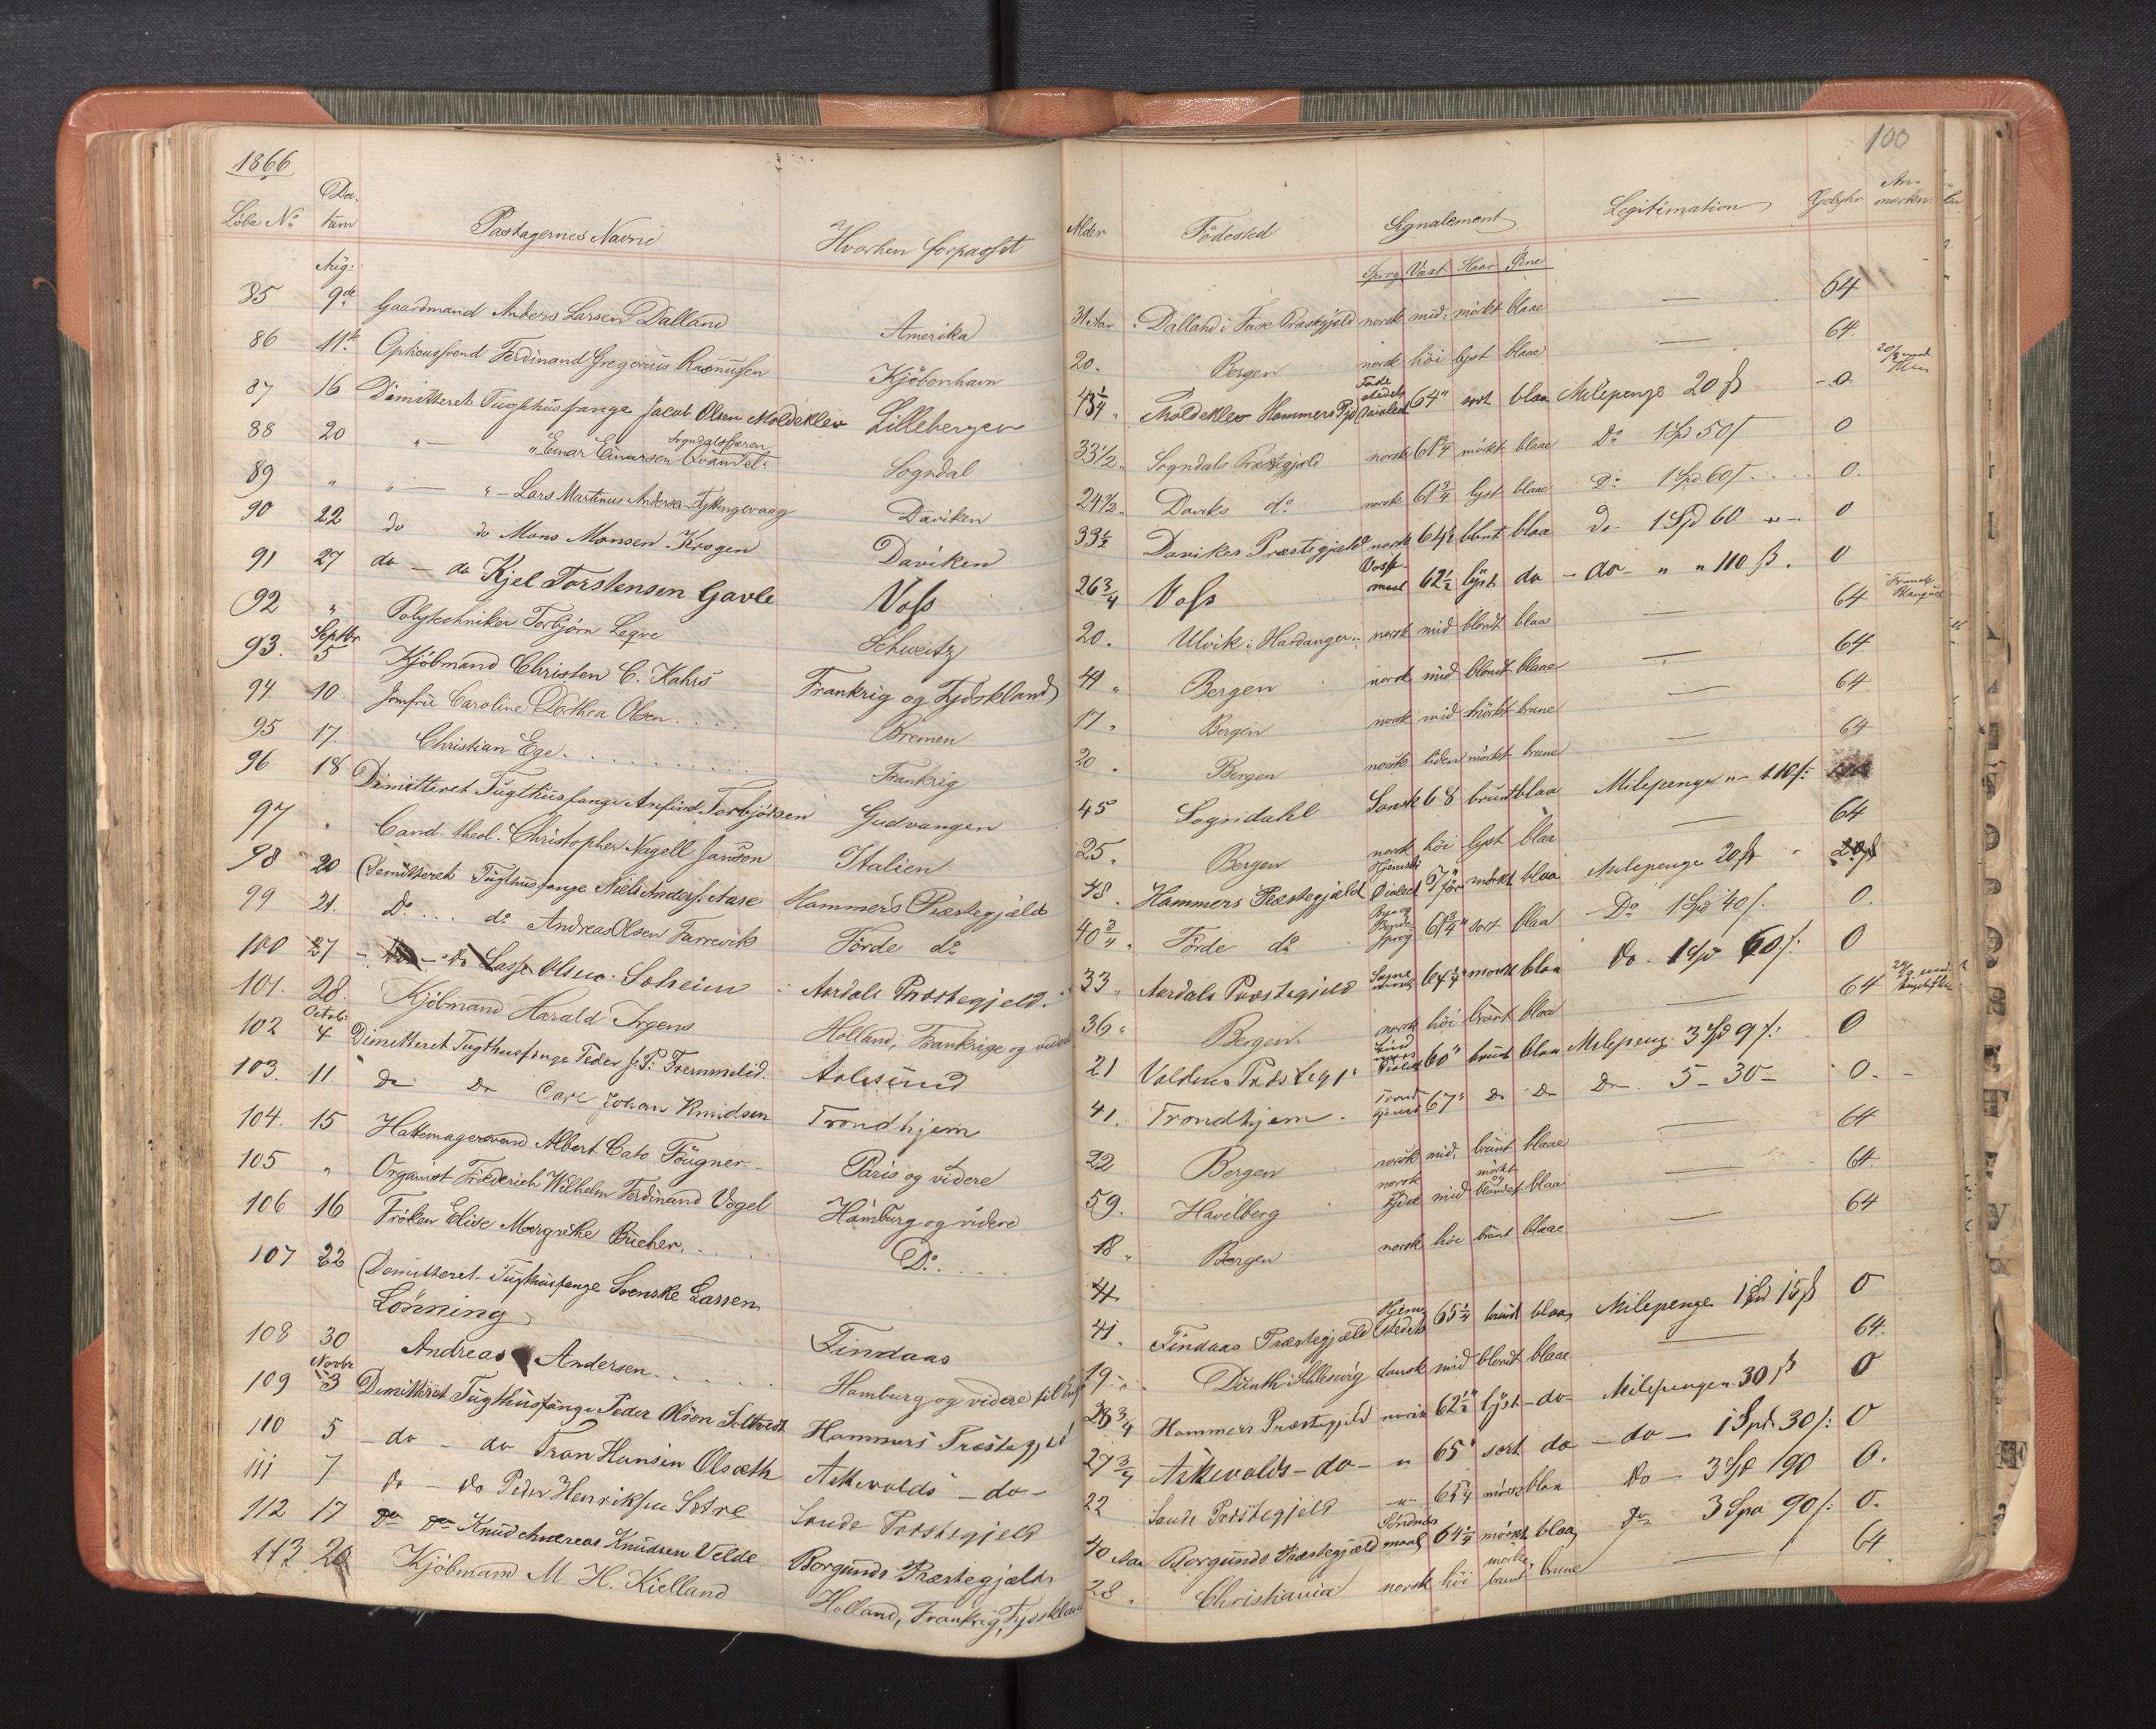 1866
100
Löbe No. Datum Passagernes Navne Hvorhen forpasset Alder Födested Signalement Legitimation Gebyhr Anmærkn.
Sprog Væxt Haar Öine
Aug:
85 9de Gaardmand Anders Larsen Dalland Amerika 31 Aar Dalland i Fuse Præstegjeld norsk mid: mörkt blaae — 64
86 11te Opticussvend Ferdinand Gregorius Rasmussen Kjöbenhavn 20. Bergen norsk höi lyst blaae — 64.
87 16 Dimitteret Tugthusfange Jacob Olsen Moldeklev Lillebergen 43¼ Moldeklev Hammers Pgd Fødestedets Dialect 64" sort blaa Milepenge 20 ß - 0.
88 20 " — " Einar Einarsen Qvamdel. Sogndalsfjæren Sogndal 33½ Sogndals Præstegjeld norsk 61¾ mörkt blaae Do 1 Spd 50 ß 0
89 " " — " — Lars Martinus Andersen Daviken 24½ Daviks do norsk 61¾ lyst blaae Do 1 Spd 60 ß 0.
90 22 do do Mons Monsen Krogen Daviken 33½ Davikes Præstegjeld norsk 64½ blont blaa do 1 Spd 60 - " - 0
91 27 do — do Kjel Torstensen Gavle Voss 26¾ Voss Vossemaal 62½ lyst do - do - " " 110 ß. 0
92 " Polytechniker Torbjörn Legre Schweitz 20. Ulvik i Hardanger norsk mid blondt blaa — 64
Septbr
93. 5 Kjöbmand Christen C. Kahrs Frankrig og Tydskland 44 " Bergen norsk mid blondt blaae — 64.
94 10. Jomfru Caroline Dorthea Olsen.... Bremen 17 " Bergen norsk mid mörkt brune — 64
95 17. Christian Ege.......... Frankrig 20 . Bergen norsk liden mörkt brune — 64
96 18 Dimitteret Tugthusfange Arnfind Torbjörsen Gudvangen 45 Sogndahl 68 brunt blaa Milepenge " - 110 ß:
97 " Cand. theol. Christopher Nagell Janson Italien 25. Bergen norsk höi lyst blaa — 64
98 20 Demitteret Tugthusfange Niels Anders: Aase Hammers Præstegjæld 48. Hammers Præstegjæld Hjemst: Dialect 67" mörkt blaa Milepenge 20 ß
99 21. Do... do Andreas Olsen Farrevik Förde do 40¾ Förde do Bygde sprog 61¾" sort blaa Do 1 Spd 40 ß. 0.
100 27 - Do - Do Lasse Olsen Soheim Aardals Præstegjeld. 33 Aardals Præstegjeld 64¾" mörkt blaa Do. 1 Spd 60 ß: 0
101. 28. Kjöbmand Harald Irgens Holland, Frankrige og videre 36 " Bergen. norsk höi brunt blaa — 64
Octob:
102 4 Dimitteret Tugthusfange Peder J. P: Fremmelid. Aalesund 21 Voldens Præstegj: Söndmørs Dialect 60" brunt blaa Milepeng. 3 Spd 9 ß: 0
103. 11 Do Do Carl Johan Knudsen Trondhjem 41. Trondhjem. 67" Do Do Do 5 - 30 - 0. -
104. 15 Hattemagersvend Albert Cato Fougner Paris og videre 22 Bergen norsk mid: brunt blaae — 64
105 " Organist Friederich Wilhelm Ferdinand Vogel Hamburg og videre 59. Havelberg norsk tydsk mid mörkt og blandet blaa — 64.
106 16 Fröken Elise Margrethe Bücher..... Do..... 18 " Bergen norsk höi brunt blaae — 64
107 22 Demitteret Tugthusfange Svenske Larsen
Lönning Findaas 41. Findaas Præstegjæld Hjemstedets 65¼ brunt blaa Milepenge 1 Spd 15 ß 0
108 30 Andreas Andersen...... Hamburg og videre til 19. Dünth i Sllesvig dansk mid blondt blaae — 64.
Novbr
109 3 Dimitteret Tugthusfange Peder Olson Soltvedt Hammers Præstegjd 23¾ Hammers Præstegjeld norsk 62½" lyst - do - Milepengen 30 ß 0
110 5 - do - do Tron Hansen Olsæth Askevolds - do - 27¾ Askevolds - do - " 65" sort do - do - 1 Spd 30 ß: 0
111 7 Do - Do Peder Henriksen Sætre Sande Præstegjeld 22 Sande Præstegjeld - " - 65¼ mörkt blaa Do - 3 Spd 190 0.
112 17 Do Do Knud Andreas Knudsen Velde Borgunds Præstegjæld 40 Aar Borgunds Præstegjæld Söndmörs maal 64¼ mörkt blaa Do 3 Spd 90 ß: 0.
113 20 Kjöbmand M. H. Kielland Holland, Frankrig, Tydskland 28. Christiania norsk höi mörke brunt brune — 64